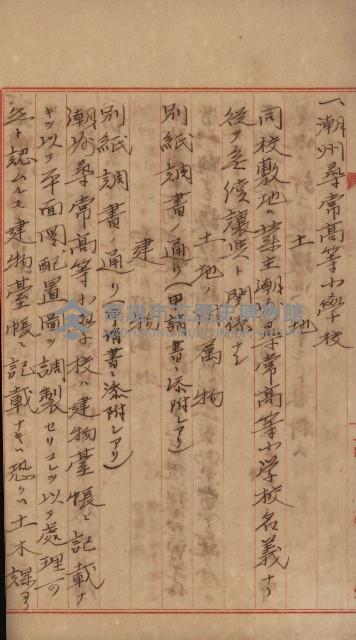 一、潮州尋常高等小学校
土地
同校敷地ハ業主潮州尋常高等小学校名義ナリ
従テ無償譲与ト関係ナシ
土地ノ萬物
別紙調書ノ通リ(甲調書ニ添附シアリ)
建物
別紙調書ノ通リ(甲調書ニ添附シアリ)
潮州尋常高等小学校ハ建物臺帳ニ記載ナ
キヲ以テ平面図、配置圖ヲ調製セリコレヲ以テ處理可
然ト認ムルモ建物臺帳ニ記載ナキハ恐クハ土木課ヨリ
高雄市立歷史博物館